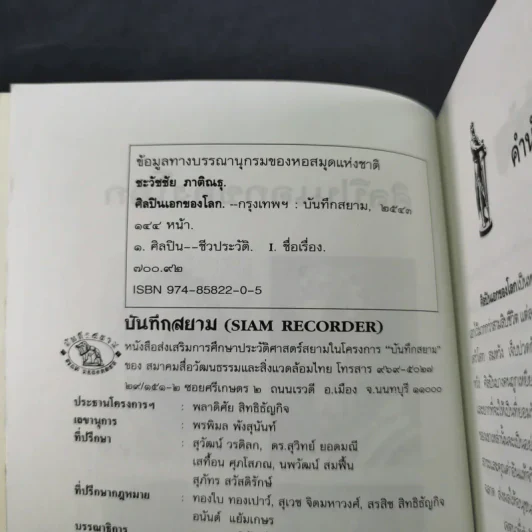 ข้อมูลทางบรรณานุกรมของหอสมุดแห่งชาติ
ชะวัชชัย ภาติณธุ.
ศิลปินเอกของโลก. --กรุงเทพฯ : บันทึกสยาม, ๒๕๔๓
๑๔๔ หน้า.
๑. ศิลปิน--ชีวประวัติ. I. ชื่อเรื่อง.
๗๐๐.๙๒
ISBN 974-85822-0-5
บันทึกสยาม (SIAM RECORDER)
หนังสือส่งเสริมการศึกษาประวัติศาสตร์สยามในโครงการ "บันทึกสยาม"
ของ สมาคมสื่อวัฒนธรรมและสิ่งแวดล้อมไทย โทรสาร ๙๖๙-๕๐๒๗
๒๙/๑๕๑-๒ ซอยศรีเกษตร ๒ ถนนเรวดี อ.เมือง จ.นนทบุรี ๑๑๐๐๐
ประธานโครงการฯ : พลาดิศัย สิทธิธัญกิจ
เลขานุการ : พรพิมล พังสุนันท์
ที่ปรึกษา : สุวัฒน์ วรดิลก, ดร.สุวิทย์ ยอดมณี
เสทื้อน ศุภโสภณ, นพวัฒน์ สมพื้น
สุภัทร สวัสดิรักษ์
ที่ปรึกษากฎหมาย : ทองใบ ทองเปาว์, สุเวช จิตมหาวงศ์, สรสิช สิทธิธัญกิจ
อนันต์ แย้มเกษร
บรรณาธิการ
คำนำ
ศิลปินเอกของโลก